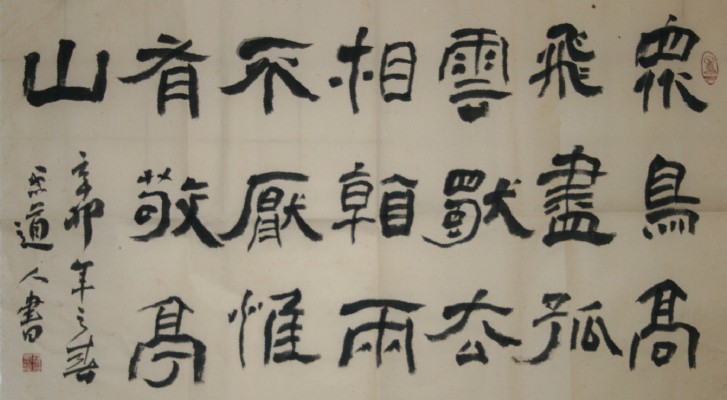 眾鳥高
飛盡孤
雲獨去
相看兩
不厭惟
有敬亭
山
辛卯年之春
道人書